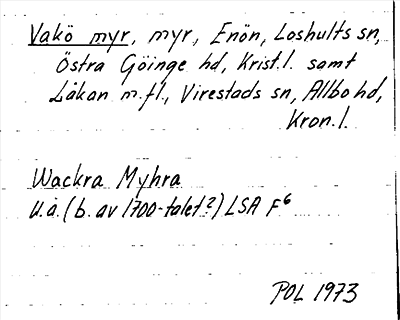 Vakö myr, myr, Enön, Loshults sn,
Östra Göinge hd, Krist.l. samt
Låkan m.fl., Virestads sn, Allbo hd,
Kron.l.
Wackra Myhra
u.å. (b. av 1700-talet?) LSA F6
POL 1973